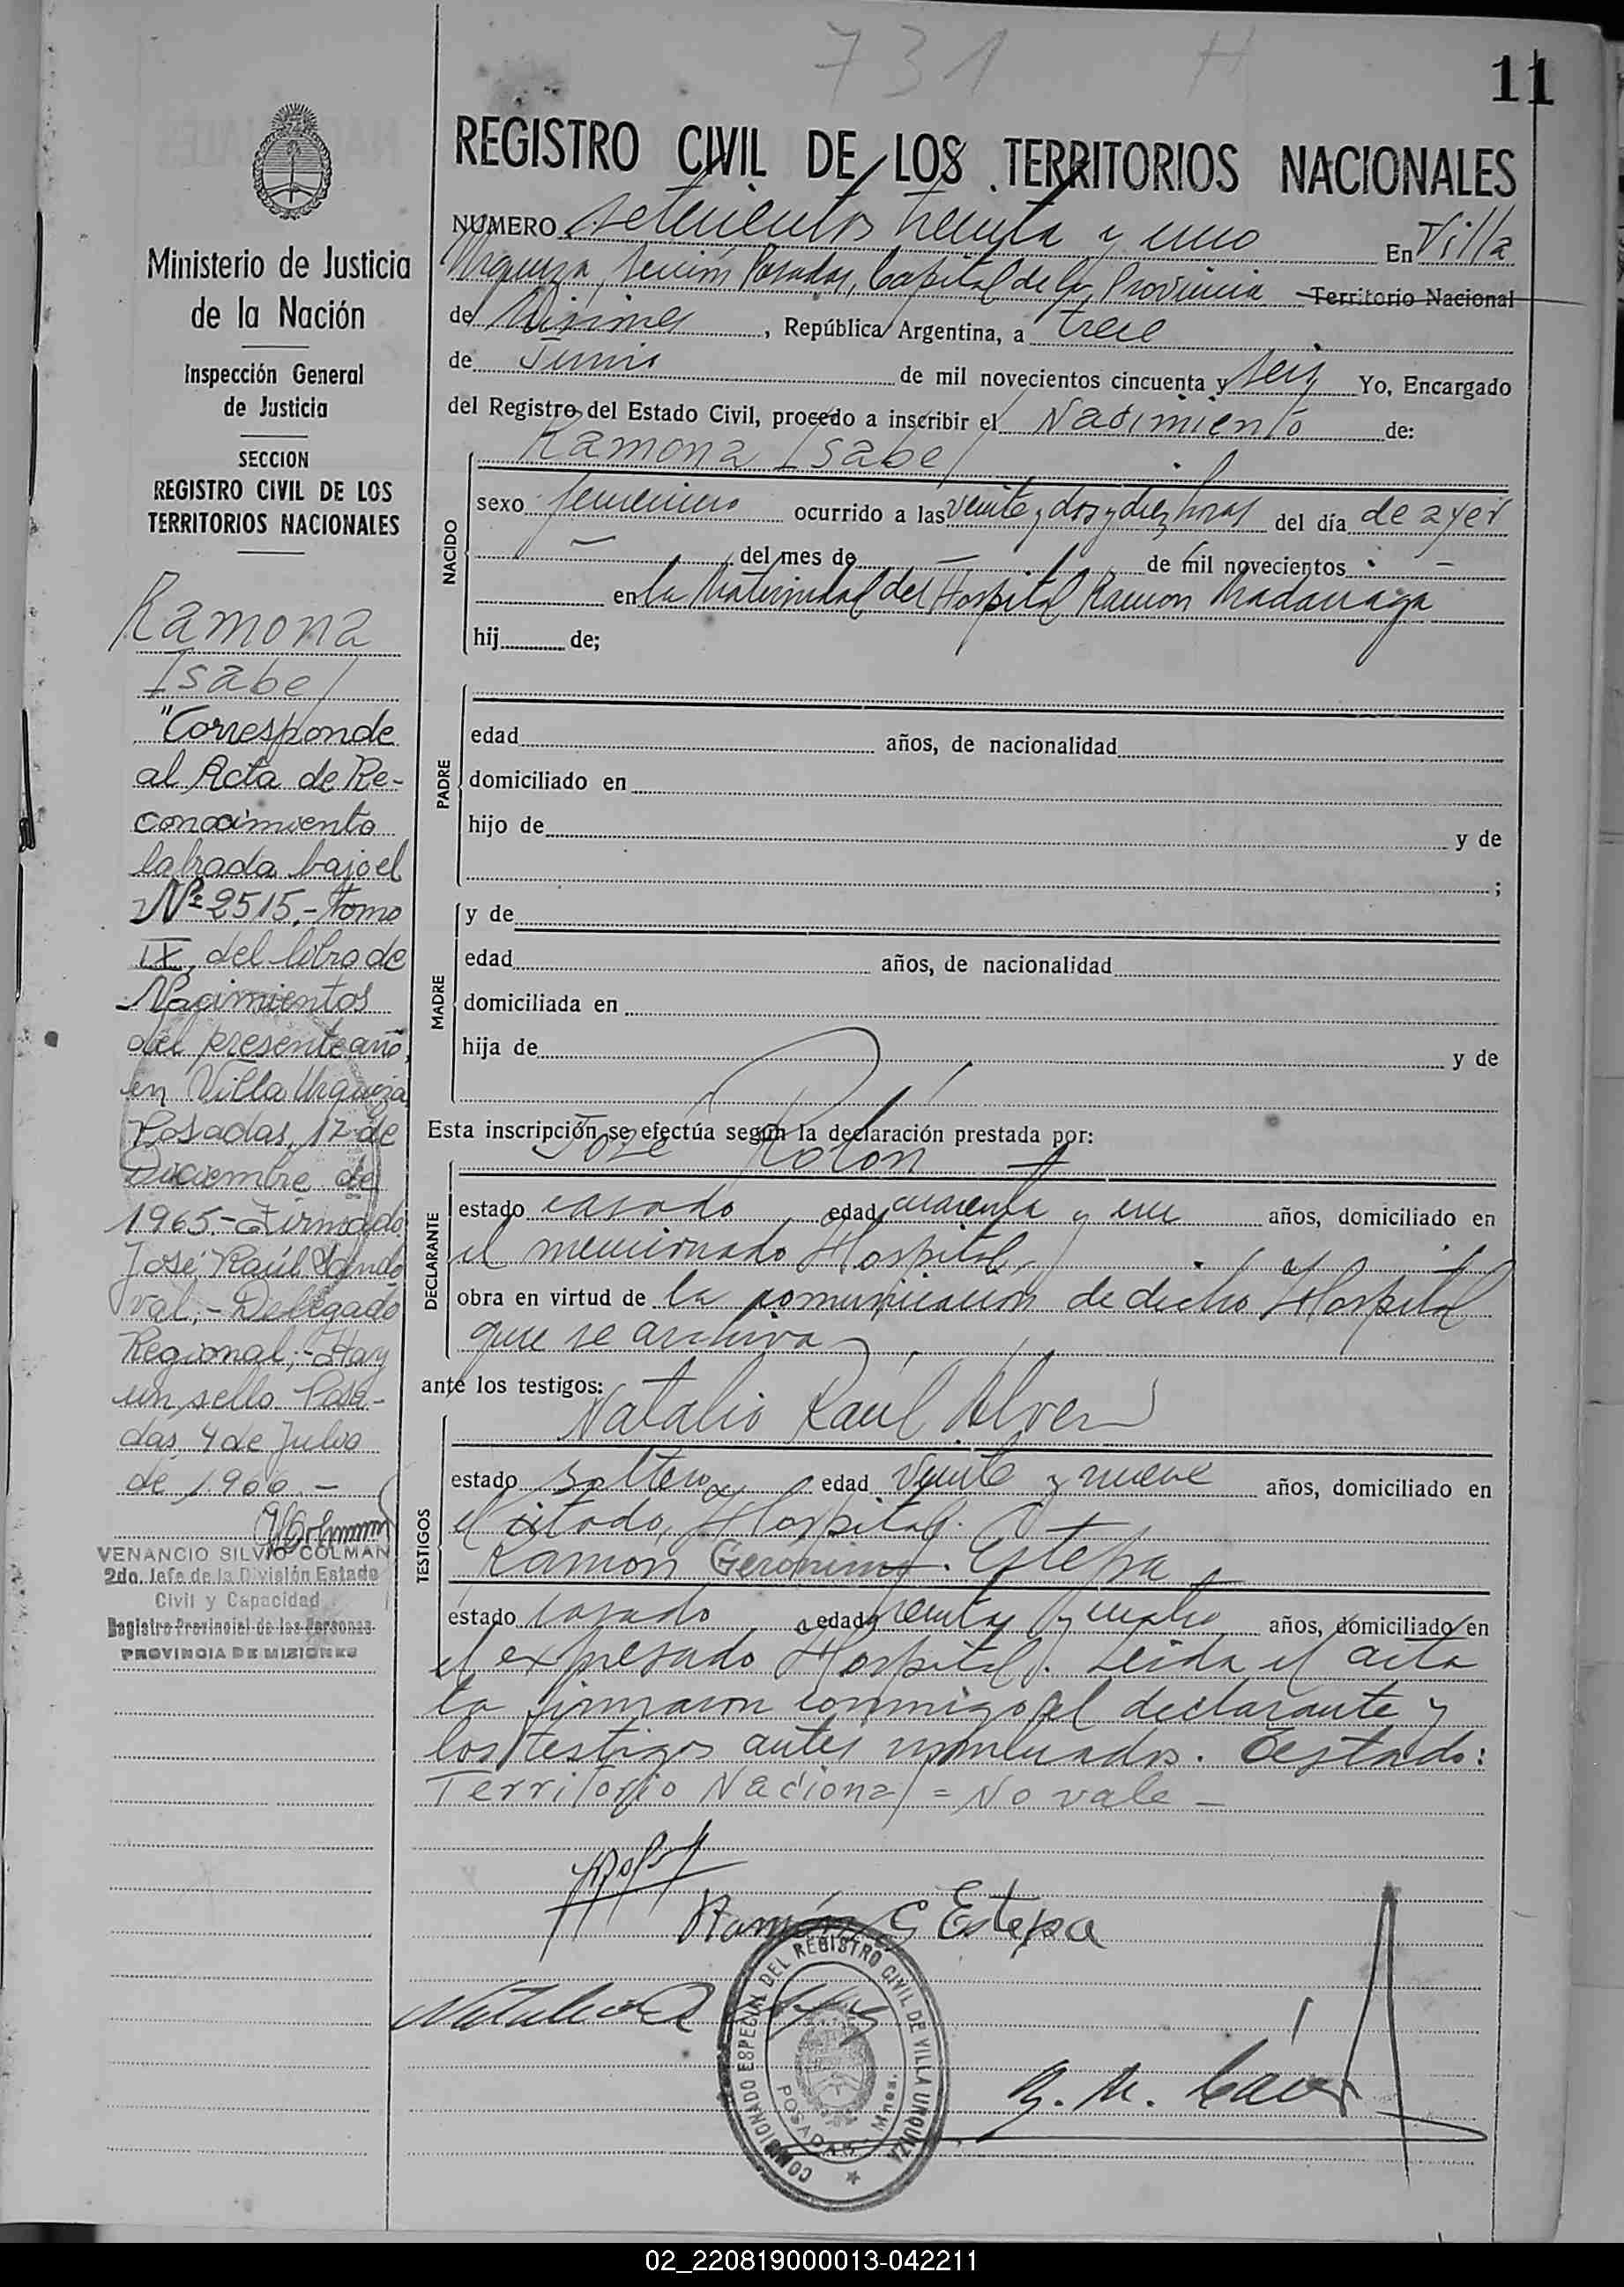 731 H
11
REGISTRO CIVIL DE LOS TERRITORIOS NACIONALES
NUMERO setecientos treinta y uno En Villa
Urquiza, sección Posadas, Capital de la Provincia Territorio Nacional
de Misiones, República Argentina, a trece
de Junio de mil novecientos cincuenta y seis Yo, Encargado
del Registro del Estado Civil, procedo a inscribir el Nacimiento de:
NACIDO
Ramona Isabel
sexo femenino ocurrido a las veinte y dos y diez horas del día de ayer
— del mes de — de mil novecientos —
en la Maternidad del Hospital Ramon Madariaga
hij de;
PADRE
edad años, de nacionalidad
domiciliado en
hijo de y de
;
MADRE
y de
edad años, de nacionalidad
domiciliada en
hija de y de
Esta inscripción se efectúa según la declaración prestada por:
DECLARANTE
José Rolón
estado casado edad cuarenta y un años, domiciliado en
el mencionado Hospital,
obra en virtud de la comunicación de dicho Hospital
que se archiva
ante los testigos:
TESTIGOS
Natalio Raúl
estado soltero edad veinte y nueve años, domiciliado en
el citado Hospital.
Ramón Gerónimo Estepa
estado casado edad y cuatro años, domiciliado en
el expresado Hospital. Leida el acta
la firmaron conmigo el declarante y
los testigos antes nombrados. Testado:
Territorio Nacional = No vale —
Ramón G Estepa
COMISIONADO ESPECIAL DEL REGISTRO CIVIL DE VILLA URQUIZA
POSADAS - Mnes.
Ministerio de Justicia
de la Nación
Inspección General
de Justicia
SECCION
REGISTRO CIVIL DE LOS
TERRITORIOS NACIONALES
Ramona
Isabel
"Corresponde
al Acta de Re-
conocimiento
labrada bajo el
Nº 2515.- tomo
IX, del libro de
Nacimientos
del presente año,
en Villa Urquiza
Posadas, 17 de
Diciembre de
1965.- Firmado:
José Raúl Sando
val,- Delegado
Regional,- Hay
un sello Posa-
das, 4 de Julio
de 1966.-
VENANCIO SILVIO COLMAN
2do. Jefe de la División Estado
Civil y Capacidad
Registro Provincial de las Personas
PROVINCIA DE MISIONES
02_220819000013-042211